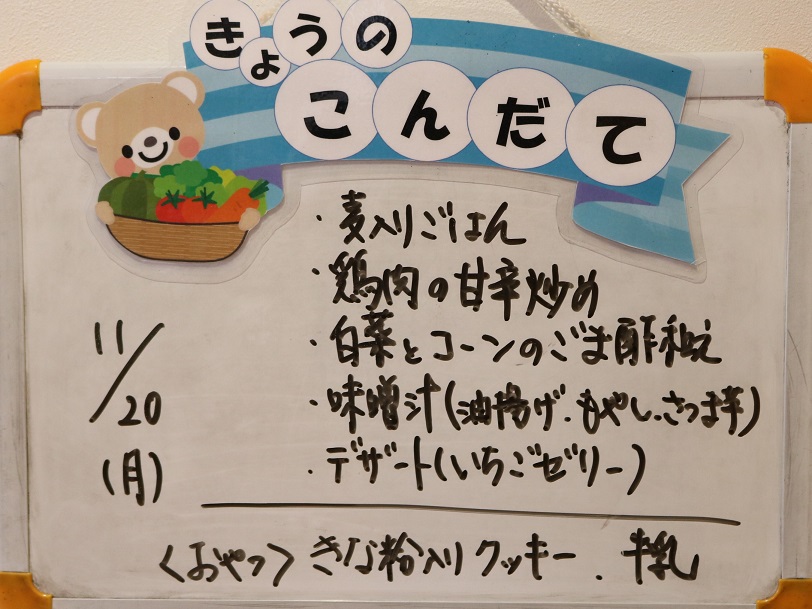 きょうの
こんだて
・麦入りごはん
・鶏肉の甘辛炒め
・白菜とコーンのごま酢和え
・味噌汁(油揚げ.もやし.さつま芋)
・デザート(いちごゼリー)
11/20
(月)
<おやつ> きな粉入りクッキー.牛乳